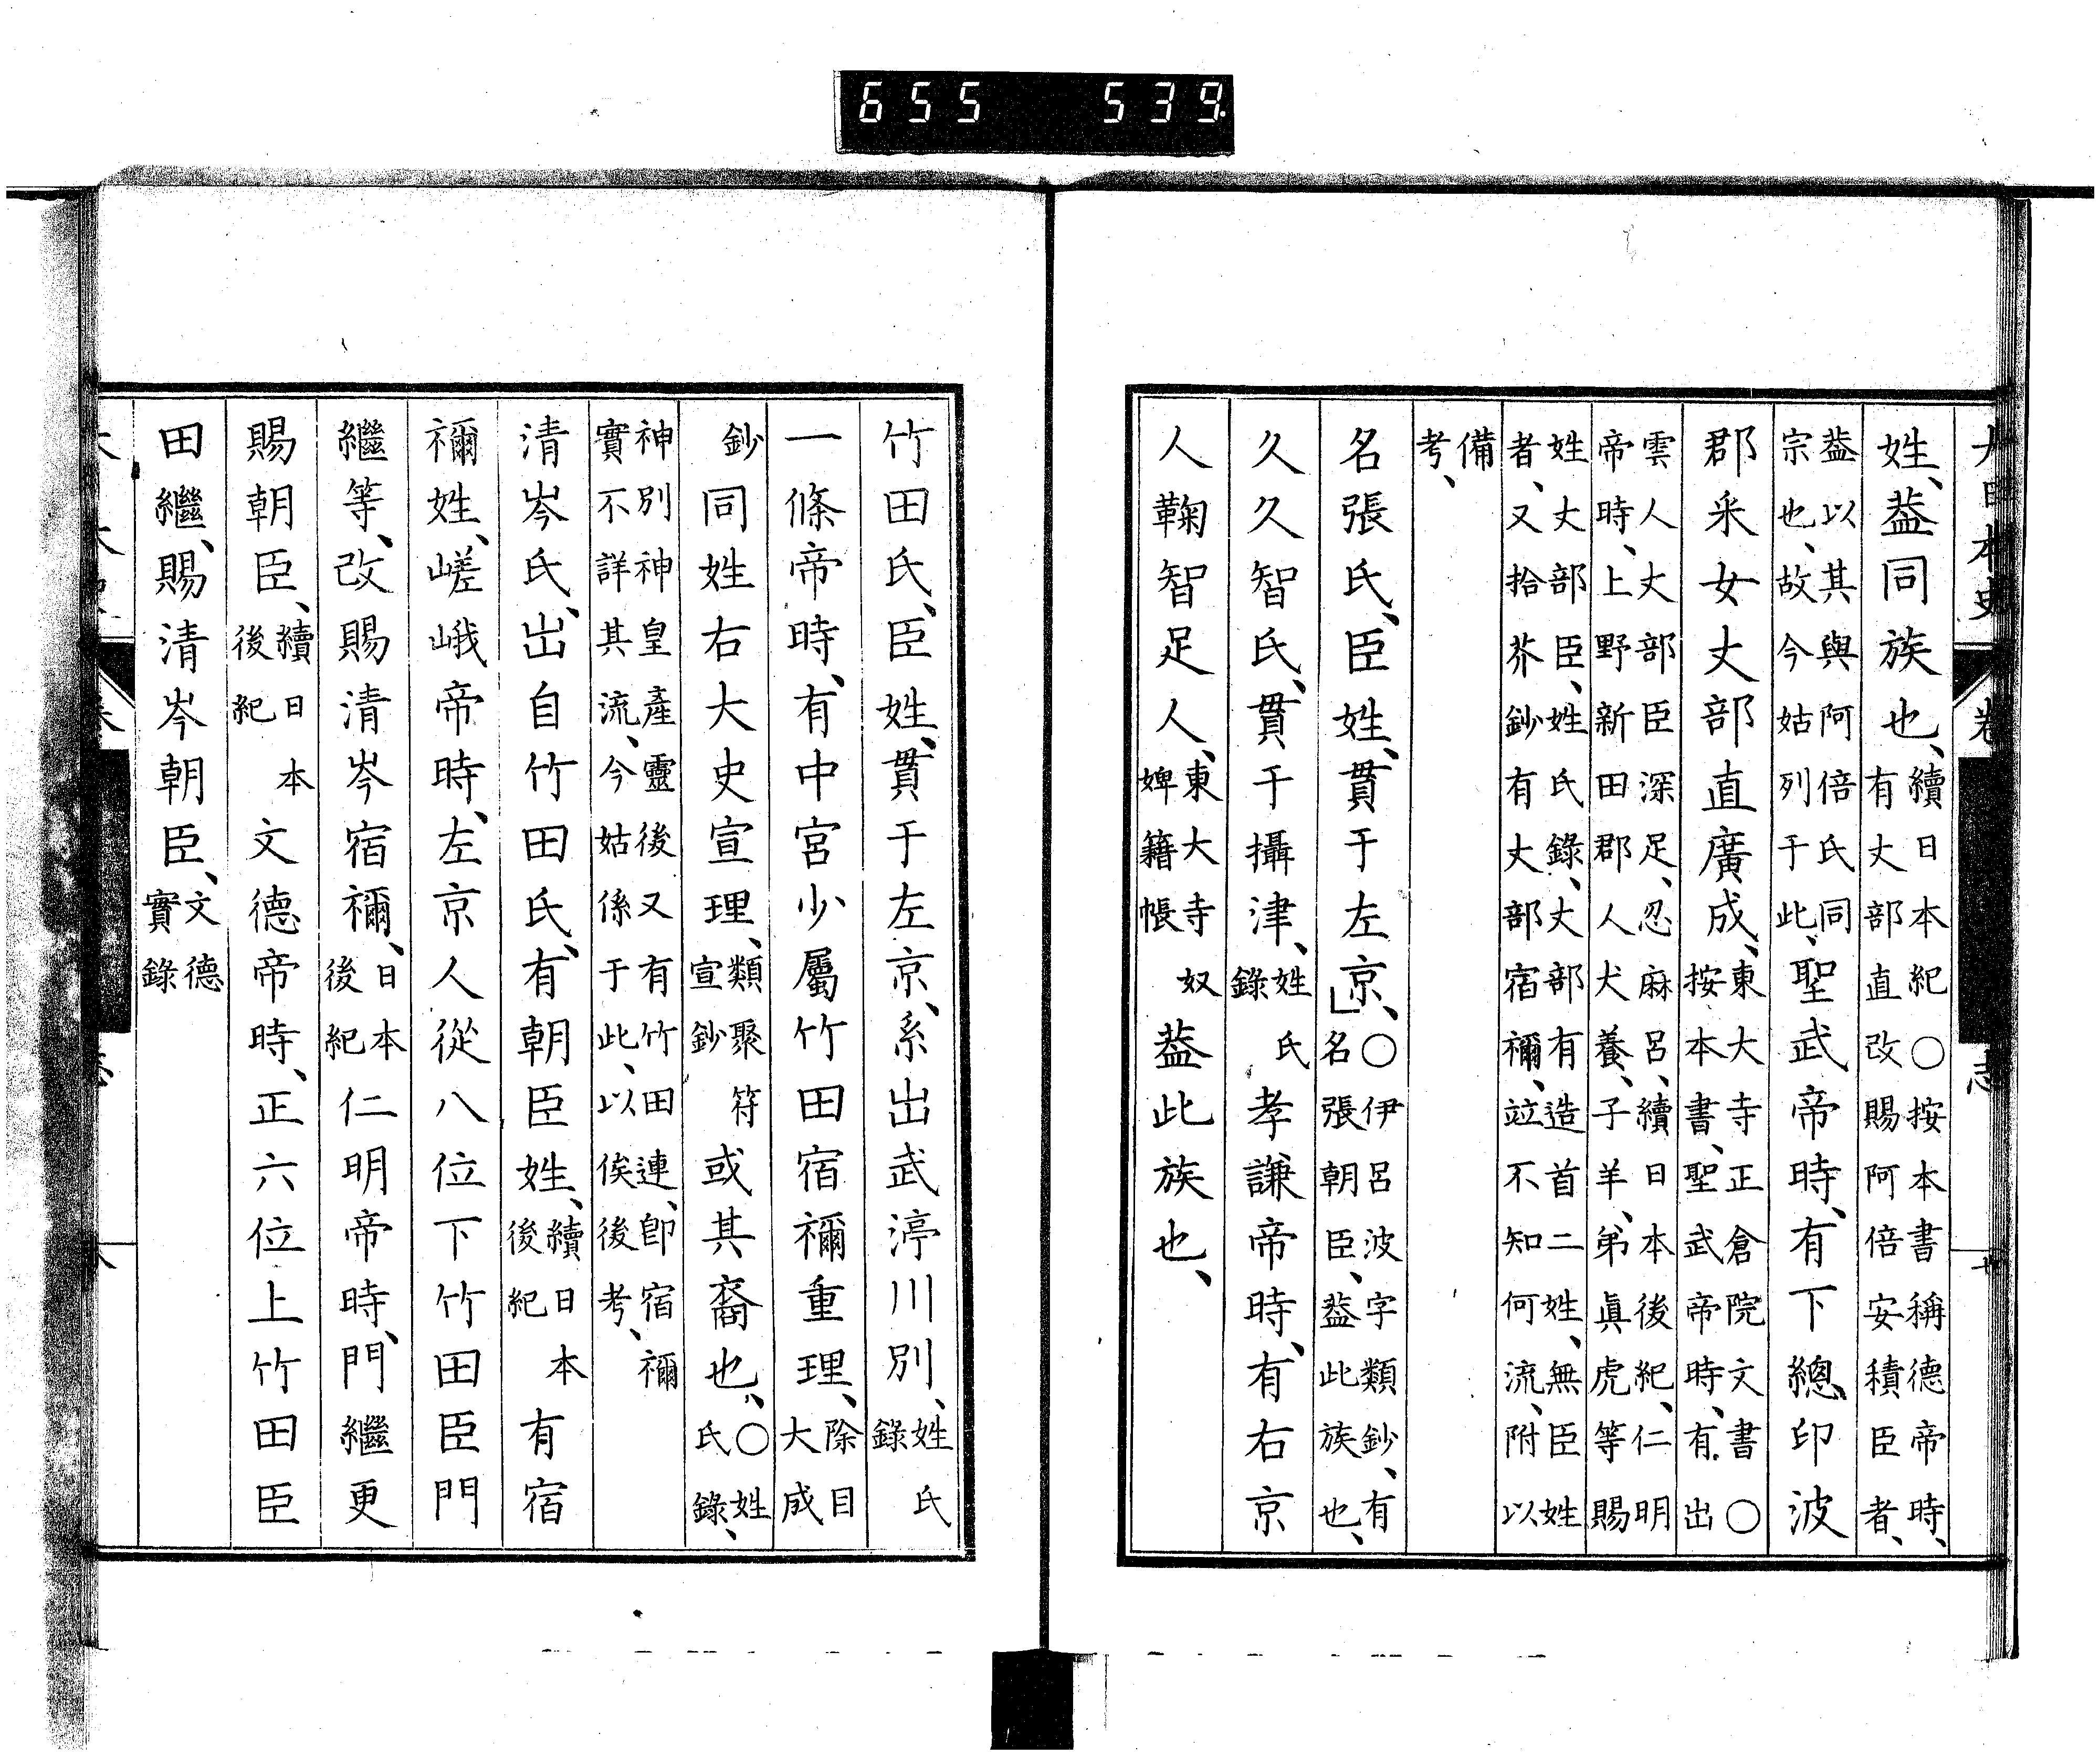 655 539
姓、葢同族也、續日本紀○按本書稱德帝時、有丈部直改賜阿倍安積臣者、
葢以其與阿倍氏同宗也、故今姑列于此、聖武帝時、有下總印波
郡采女丈部直廣成、東大寺正倉院文書○按本書、聖武帝時、有出
雲人丈部臣深足、忍麻呂、續日本後紀、仁明帝時、上野新田郡人犬養、子羊、弟眞虎等賜
姓丈部臣、姓氏錄、丈部有造首二姓、無臣姓者、又拾芥鈔有丈部宿禰、竝不知何流、附以
備考、
名張氏、臣姓、貫于左京、○伊呂波字類鈔、有名張朝臣、葢此族也、
久久智氏、貫于攝津、姓氏錄孝謙帝時、有右京
人鞠智足人、東大寺奴婢籍帳葢此族也、
竹田氏、臣姓、貫于左京、系出武渟川別、姓氏錄
一條帝時、有中宮少屬竹田宿禰重理、除目大成
鈔同姓右大史宣理、類聚符宣鈔或其裔也、○姓氏錄、
神別神皇產靈後又有竹田連、卽宿禰實不詳其流、今姑係于此、以俟後考、
清岑氏、出自竹田氏、有朝臣姓、續日本後紀有宿
禰姓、嵯峨帝時、左京人從八位下竹田臣門
繼等、改賜清岑宿禰、日本後紀仁明帝時、門繼更
賜朝臣、續日本後紀文德帝時、正六位上竹田臣
田繼、賜清岑朝臣、文德實錄